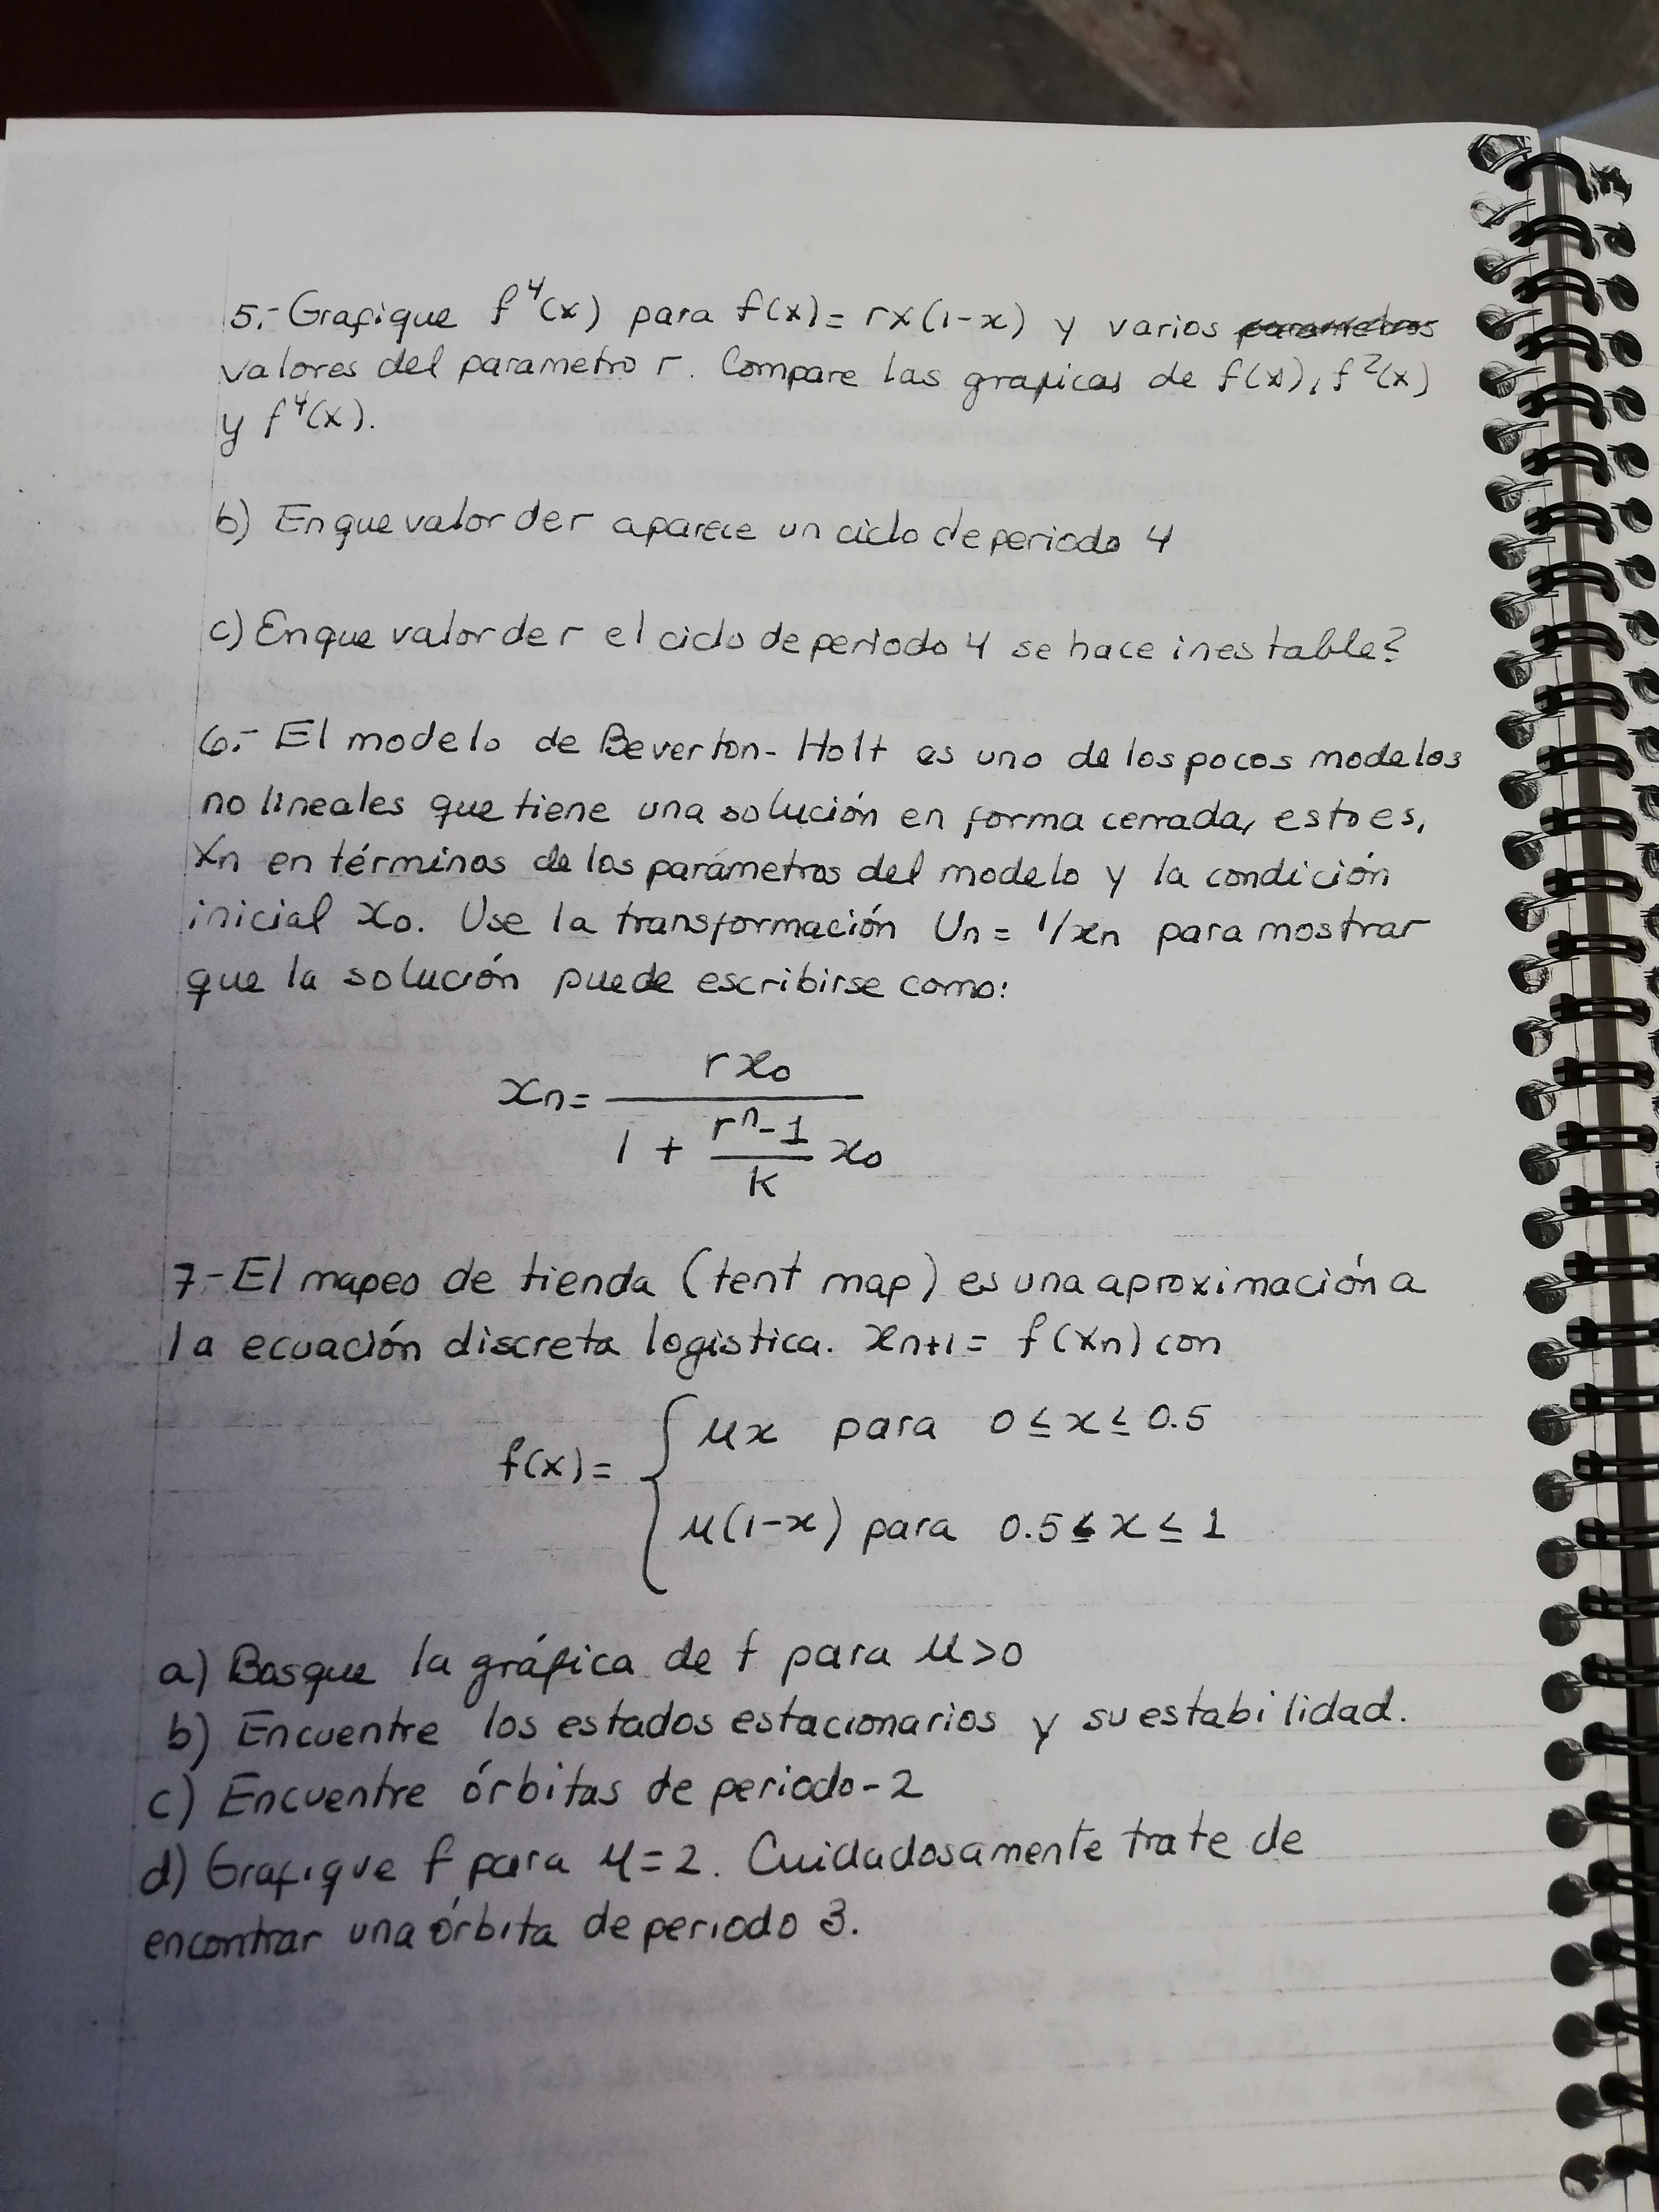 5.- Grafique f⁴(x) para f(x)= rx(1-x) y varios parametros
valores del parametro r. Compare las graficas de f(x), f²(x)
y f⁴(x).
b) En que valor de r aparece un ciclo de periodo 4
c) En que valor de r el ciclo de periodo 4 se hace inestable?
6.- El modelo de Beverton-Holt es uno de los pocos modelos
no lineales que tiene una solución en forma cerrada, esto es,
Xn en términos de los parámetros del modelo y la condición
inicial x₀. Use la transformación Un = 1/xn para mostrar
que la solución puede escribirse como:
xn = r x₀ / (1 + (rⁿ-1)/k x₀)
7.- El mapeo de tienda (tent map) es una aproximación a
la ecuación discreta logistica. xn+1 = f(xn) con
f(x) = { μx para 0 ≤ x ≤ 0.5
μ(1-x) para 0.5 ≤ x ≤ 1
a) Bosque la gráfica de f para μ>0
b) Encuentre los estados estacionarios y su estabilidad.
c) Encuentre órbitas de periodo-2
d) Grafique f para μ=2. Cuidadosamente trate de
encontrar una órbita de periodo 3.